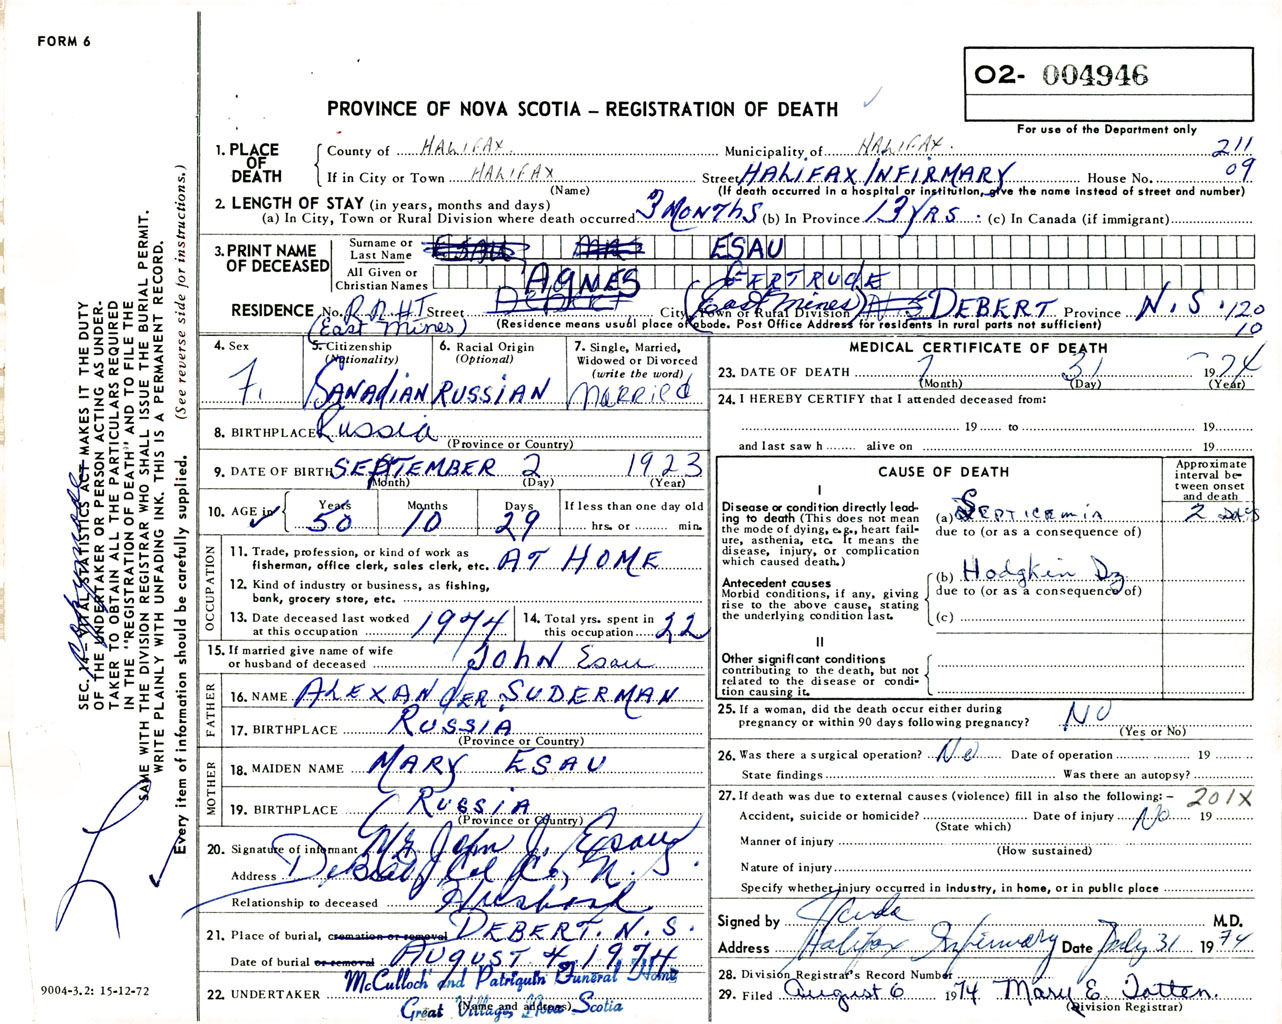 FORM 6
O2- 004946
PROVINCE OF NOVA SCOTIA – REGISTRATION OF DEATH
For use of the Department only
1. PLACE OF DEATH
County of HALIFAX. Municipality of HALIFAX. 211
If in City or Town HALIFAX Street HALIFAX INFIRMARY House No. 09
(Name) (If death occurred in a hospital or institution, give the name instead of street and number)
2. LENGTH OF STAY (in years, months and days)
(a) In City, Town or Rural Division where death occurred 3 MONTHS (b) In Province 13 YRS. (c) In Canada (if immigrant)
3. PRINT NAME OF DECEASED
Surname or Last Name ESAU
All Given or Christian Names AGNES GERTRUDE
RESIDENCE No. R.R.#1 Street DEBERT City, Town or Rural Division (East Mines) DEBERT Province N.S. 120
(East Mines) (Residence means usual place of abode. Post Office Address for residents in rural parts not sufficient) 10
4. Sex F.
5. Citizenship (Nationality) CANADIAN
6. Racial Origin (Optional) RUSSIAN
7. Single, Married, Widowed or Divorced (write the word) MARRIED
8. BIRTHPLACE Russia
(Province or Country)
9. DATE OF BIRTH SEPTEMBER 2 1923
(Month) (Day) (Year)
10. AGE in Years 50 Months 10 Days 29 If less than one day old hrs. or min.
OCCUPATION
11. Trade, profession, or kind of work as fisherman, office clerk, sales clerk, etc. AT HOME
12. Kind of industry or business, as fishing, bank, grocery store, etc.
13. Date deceased last worked at this occupation 1974
14. Total yrs. spent in this occupation 22
15. If married give name of wife or husband of deceased JOHN Esau
FATHER
16. NAME ALEXANDER SUDERMAN
17. BIRTHPLACE RUSSIA
(Province or Country)
MOTHER
18. MAIDEN NAME MARY ESAU
19. BIRTHPLACE RUSSIA
(Province or Country)
20. Signature of informant Mr John J. Esau
Address Debert, Col Co, N.S.
Relationship to deceased Husband
21. Place of burial, cremation or removal DEBERT. N.S.
Date of burial or removal AUGUST 4, 1974
22. UNDERTAKER McCulloch and Patriquin Funeral Home
(Name and address) Great Village, Nova Scotia
MEDICAL CERTIFICATE OF DEATH
23. DATE OF DEATH 7 31 1974
(Month) (Day) (Year)
24. I HEREBY CERTIFY that I attended deceased from:
19 to 19
and last saw h alive on 19
CAUSE OF DEATH
Approximate interval between onset and death
I
Disease or condition directly leading to death (This does not mean the mode of dying, e.g., heart failure, asthenia, etc. It means the disease, injury, or complication which caused death.)
(a) SEPTICEMIA 2 DAYS
due to (or as a consequence of)
Antecedent causes
Morbid conditions, if any, giving rise to the above cause, stating the underlying condition last.
(b) Hodgkin Dz
due to (or as a consequence of)
(c)
II
Other significant conditions contributing to the death, but not related to the disease or condition causing it.
25. If a woman, did the death occur either during pregnancy or within 90 days following pregnancy? NO
(Yes or No)
26. Was there a surgical operation? No Date of operation 19
State findings Was there an autopsy?
27. If death was due to external causes (violence) fill in also the following: – 201X
Accident, suicide or homicide? Date of injury No 19
(State which)
Manner of injury
(How sustained)
Nature of injury
Specify whether injury occurred in industry, in home, or in public place
Signed by M.D.
Address Halifax Infirmary Date July 31 1974
28. Division Registrar's Record Number
29. Filed August 6 1974 Mary E. Totten.
(Division Registrar)
SEC. 14 – VITAL STATISTICS ACT MAKES IT THE DUTY
OF THE UNDERTAKER OR PERSON ACTING AS UNDER-
TAKER TO OBTAIN ALL THE PARTICULARS REQUIRED
IN THE "REGISTRATION OF DEATH" AND TO FILE THE
SAME WITH THE DIVISION REGISTRAR WHO SHALL ISSUE THE BURIAL PERMIT.
WRITE PLAINLY WITH UNFADING INK. THIS IS A PERMANENT RECORD.
Every item of information should be carefully supplied. (See reverse side for instructions.)
9004-3.2: 15-12-72